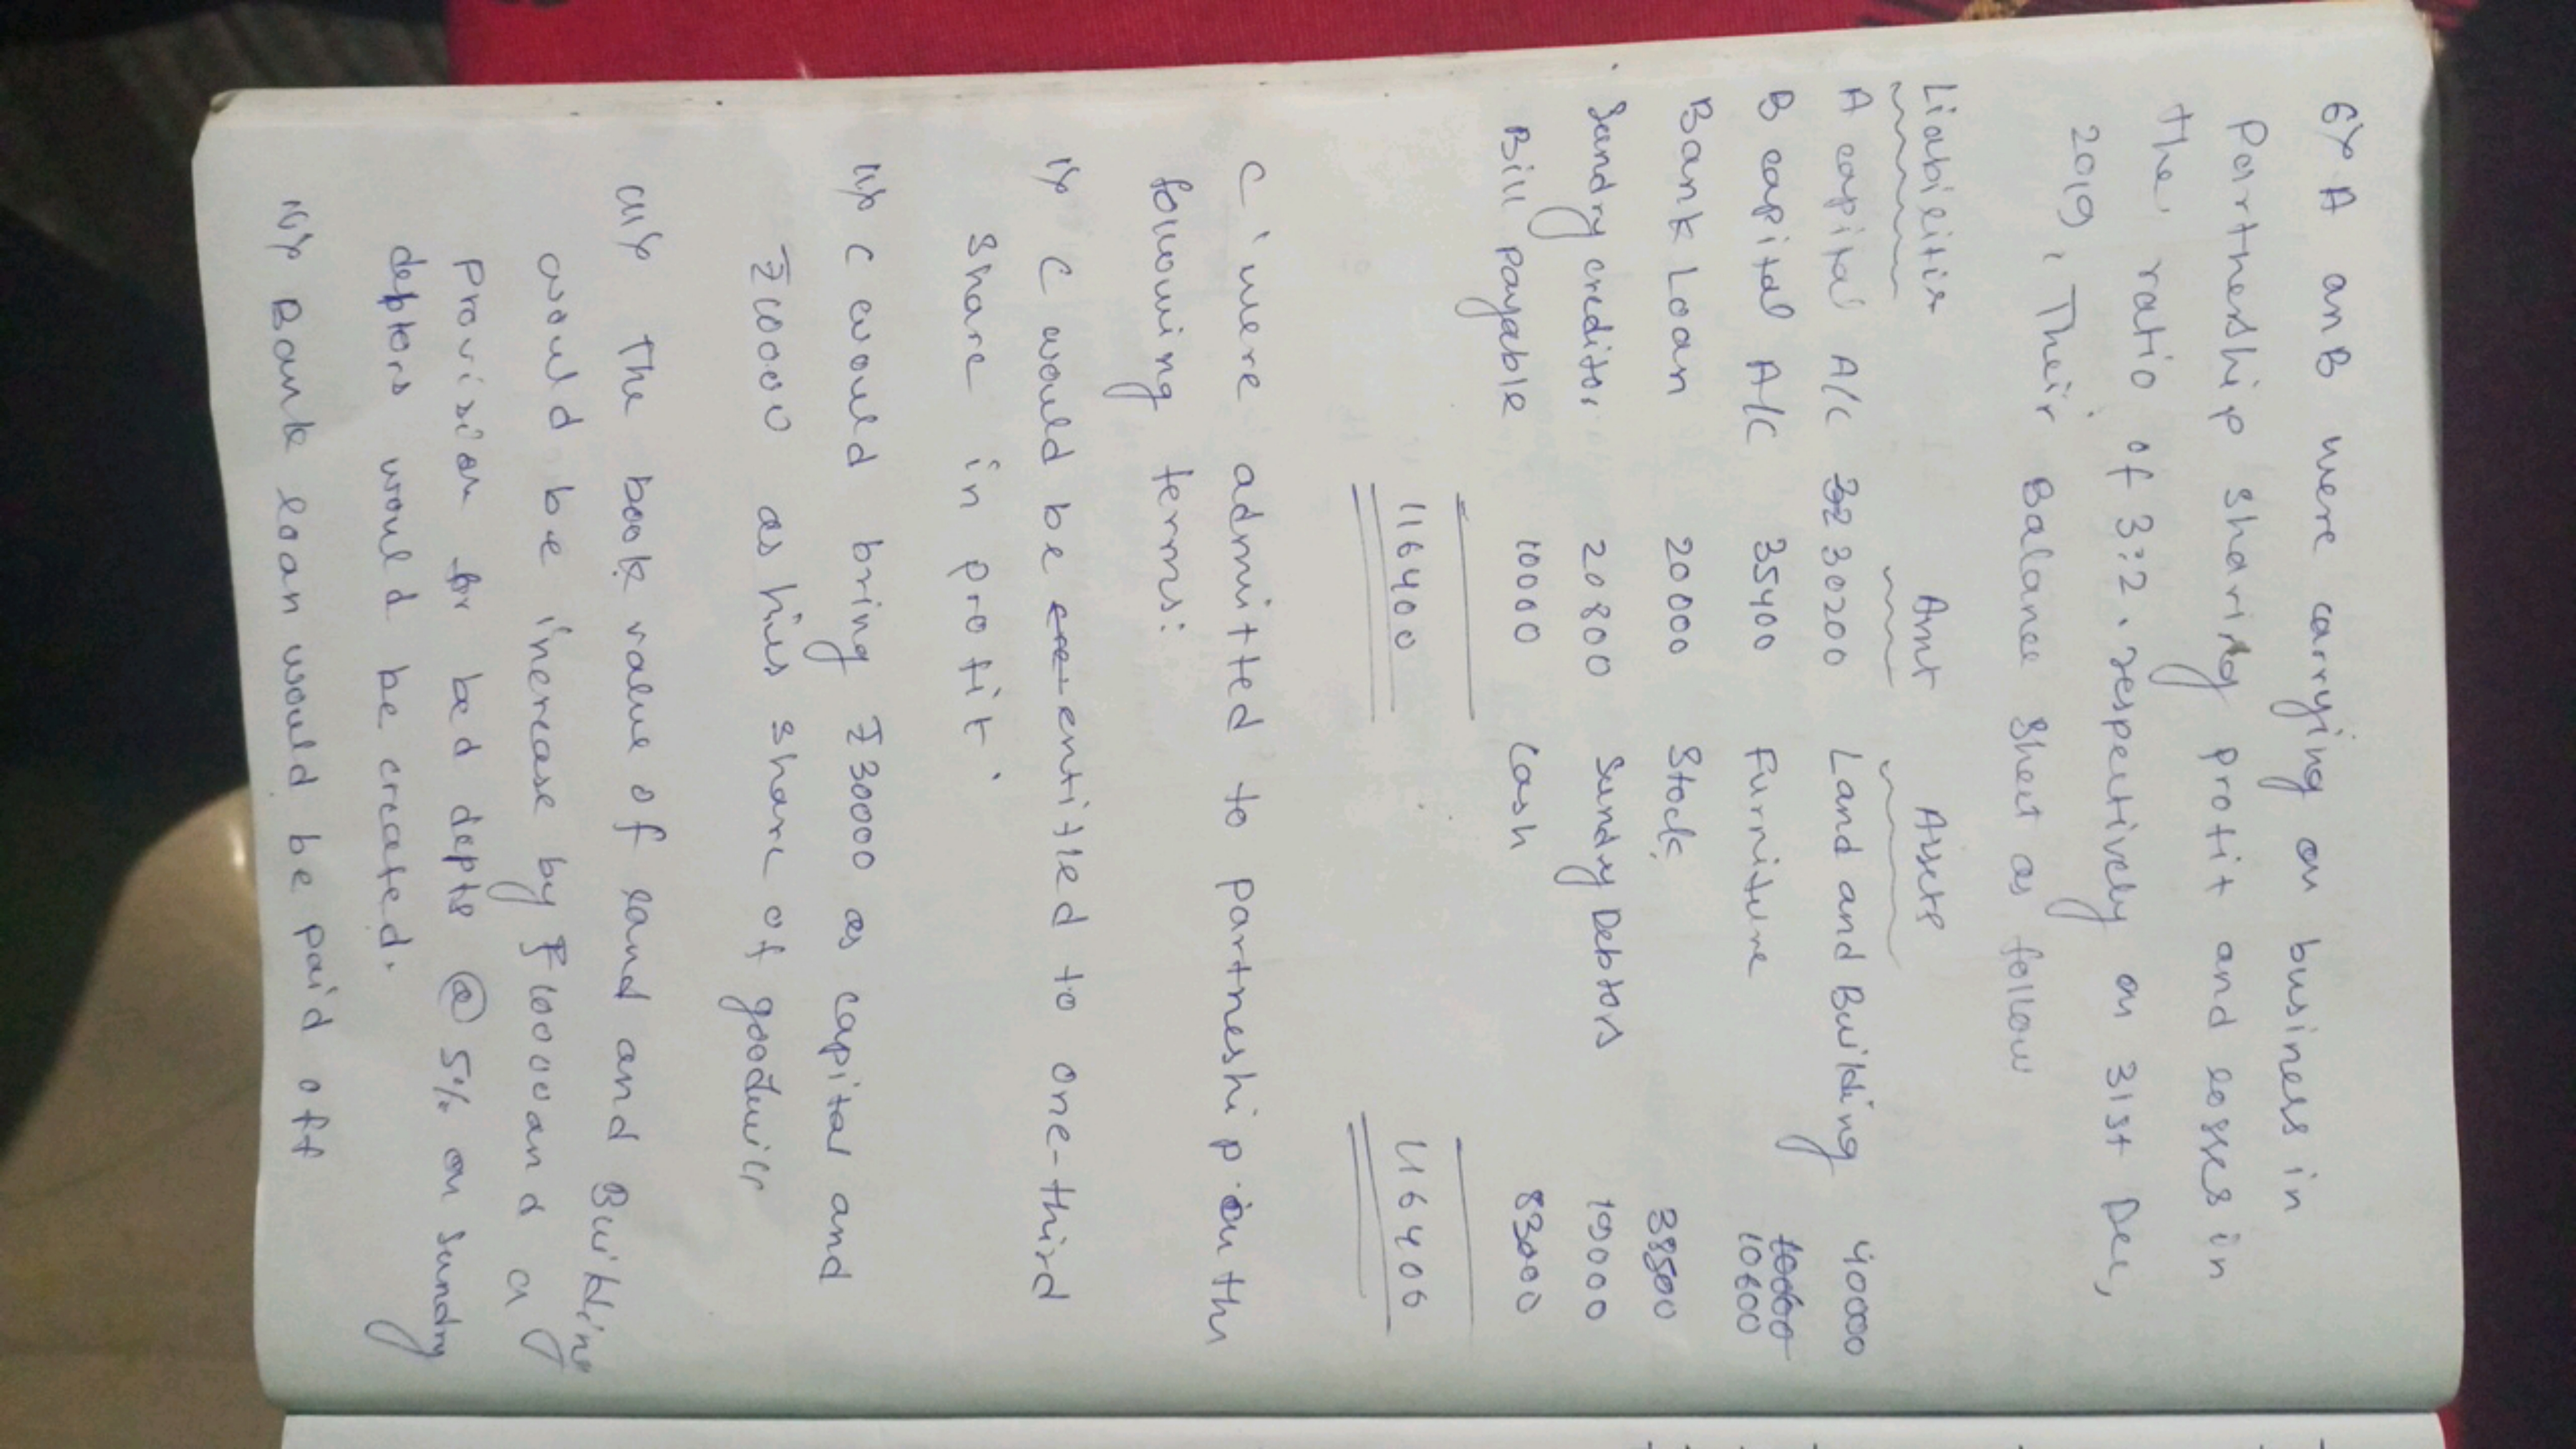 6) A an B were carrying on business in
Partnership sharing protit and losses in
the ratio of 3:2. respectively on 31st Dec,
2019, Their Balance Sheet as follow
Liabilities Amt Assets
A capital A/C 30200 Land and Building 40000
B capital A/C 35400 Furniture 10600
Bank Loan 20000 Stock 38500
Sundry creditor 20800 Sundry Debtors 19000
Bill Payable 10000 Cash 83000
116400 116400
C were admitted to partneship on the
following terms:
i) C would be entitled to one-third
share in protit.
ii) C would bring ₹30000 as capital and
₹10000 as his share of goodwill
iii) The book value of land and Building
would be increase by ₹10000 and a
provision for bed depts @ 5% on sundry
deptors would be created.
iv) Bank loan would be paid off